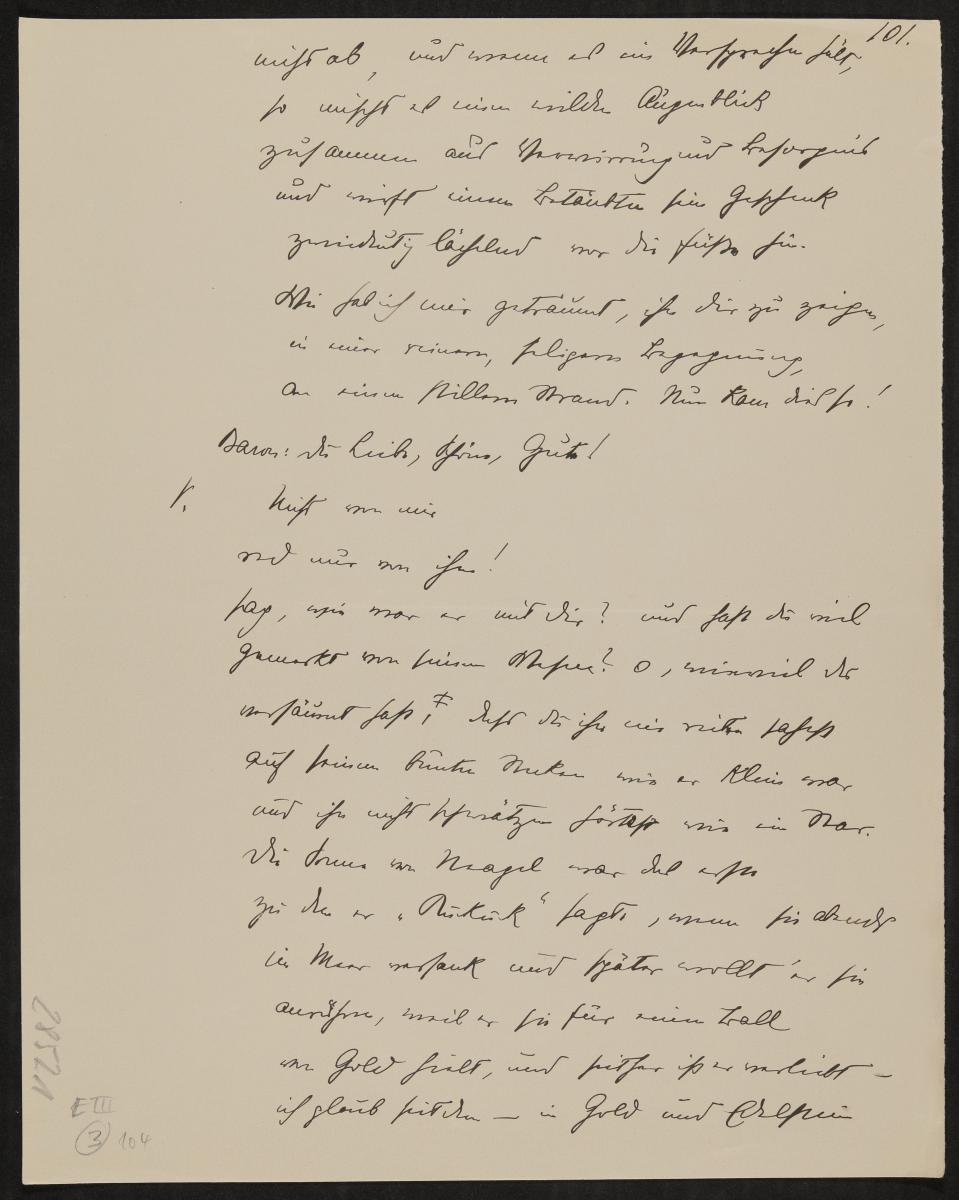 101.
nicht ab, und wenn es ein Versprechen hält,
so mischt es einen wilden Augenblick
zusammen aus Verwirrung und Besorgnis
und wirft einem Betäubten sein Geschenk
zweideutig lächelnd vor die Füße hin.
Wie hab ich mir geträumt, ihn dir zu zeigen,
in einer reinern, seligern Begegnung,
an einem stillern Strand. Nun kam dies so!
Baron: du Liebe, Schöne, Gute!
V. Nicht von mir
red nur von ihm!
sag, wie war er mit dir? und hast du viel
gemerkt von seinem Wesen? O, wieviel du
versäumt hast, dass du ihn nie reiten sahest
auf seinem bunten Stecken wie er klein war
und ihn nicht schwätzen hörtest wie ein Star.
Die Sonne von Neapel war das erste
zu dem er „Kuckuck" sagte, wenn sie abends
im Meer versank und später wollt' er sie
anrühren, weil er sie für einen Ball
von Gold hielt, und seither ist er verliebt –
ich glaub seitdem – in Gold und Edelstein
E III
3 104